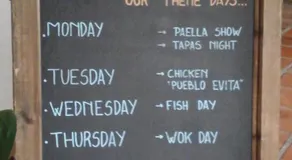 OUR THEME DAYS...
• MONDAY → PAELLA SHOW
→ TAPAS NIGHT
• TUESDAY → CHICKEN
"PUEBLO EVITA"
• WEDNESDAY → FISH DAY
• THURSDAY → WOK DAY